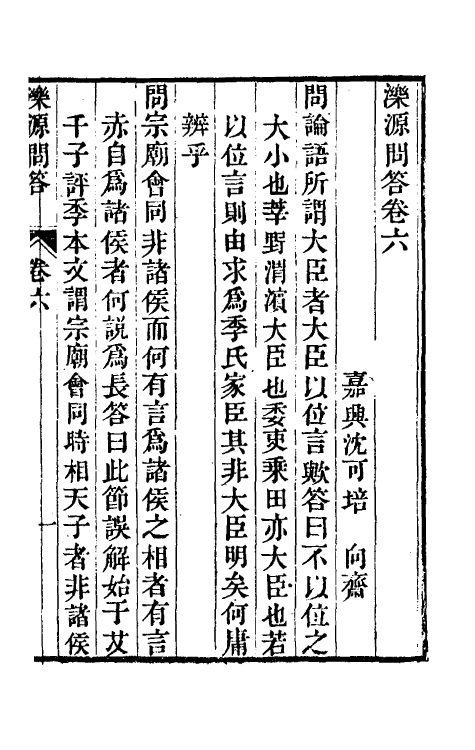 濼源問答卷六
嘉興沈可培　向齋
問論語所謂大臣者大臣以位言歟答曰不以位之
大小也莘野渭濱大臣也委吏乘田亦大臣也若
以位言則由求爲季氏家臣其非大臣明矣何庸
辨乎
問宗廟會同非諸侯而何有言爲諸侯之相者有言
赤自爲諸侯者何説爲長答曰此節誤解始于艾
千子評季本文謂宗廟會同時相天子者非諸侯
濼源問答　卷六　一